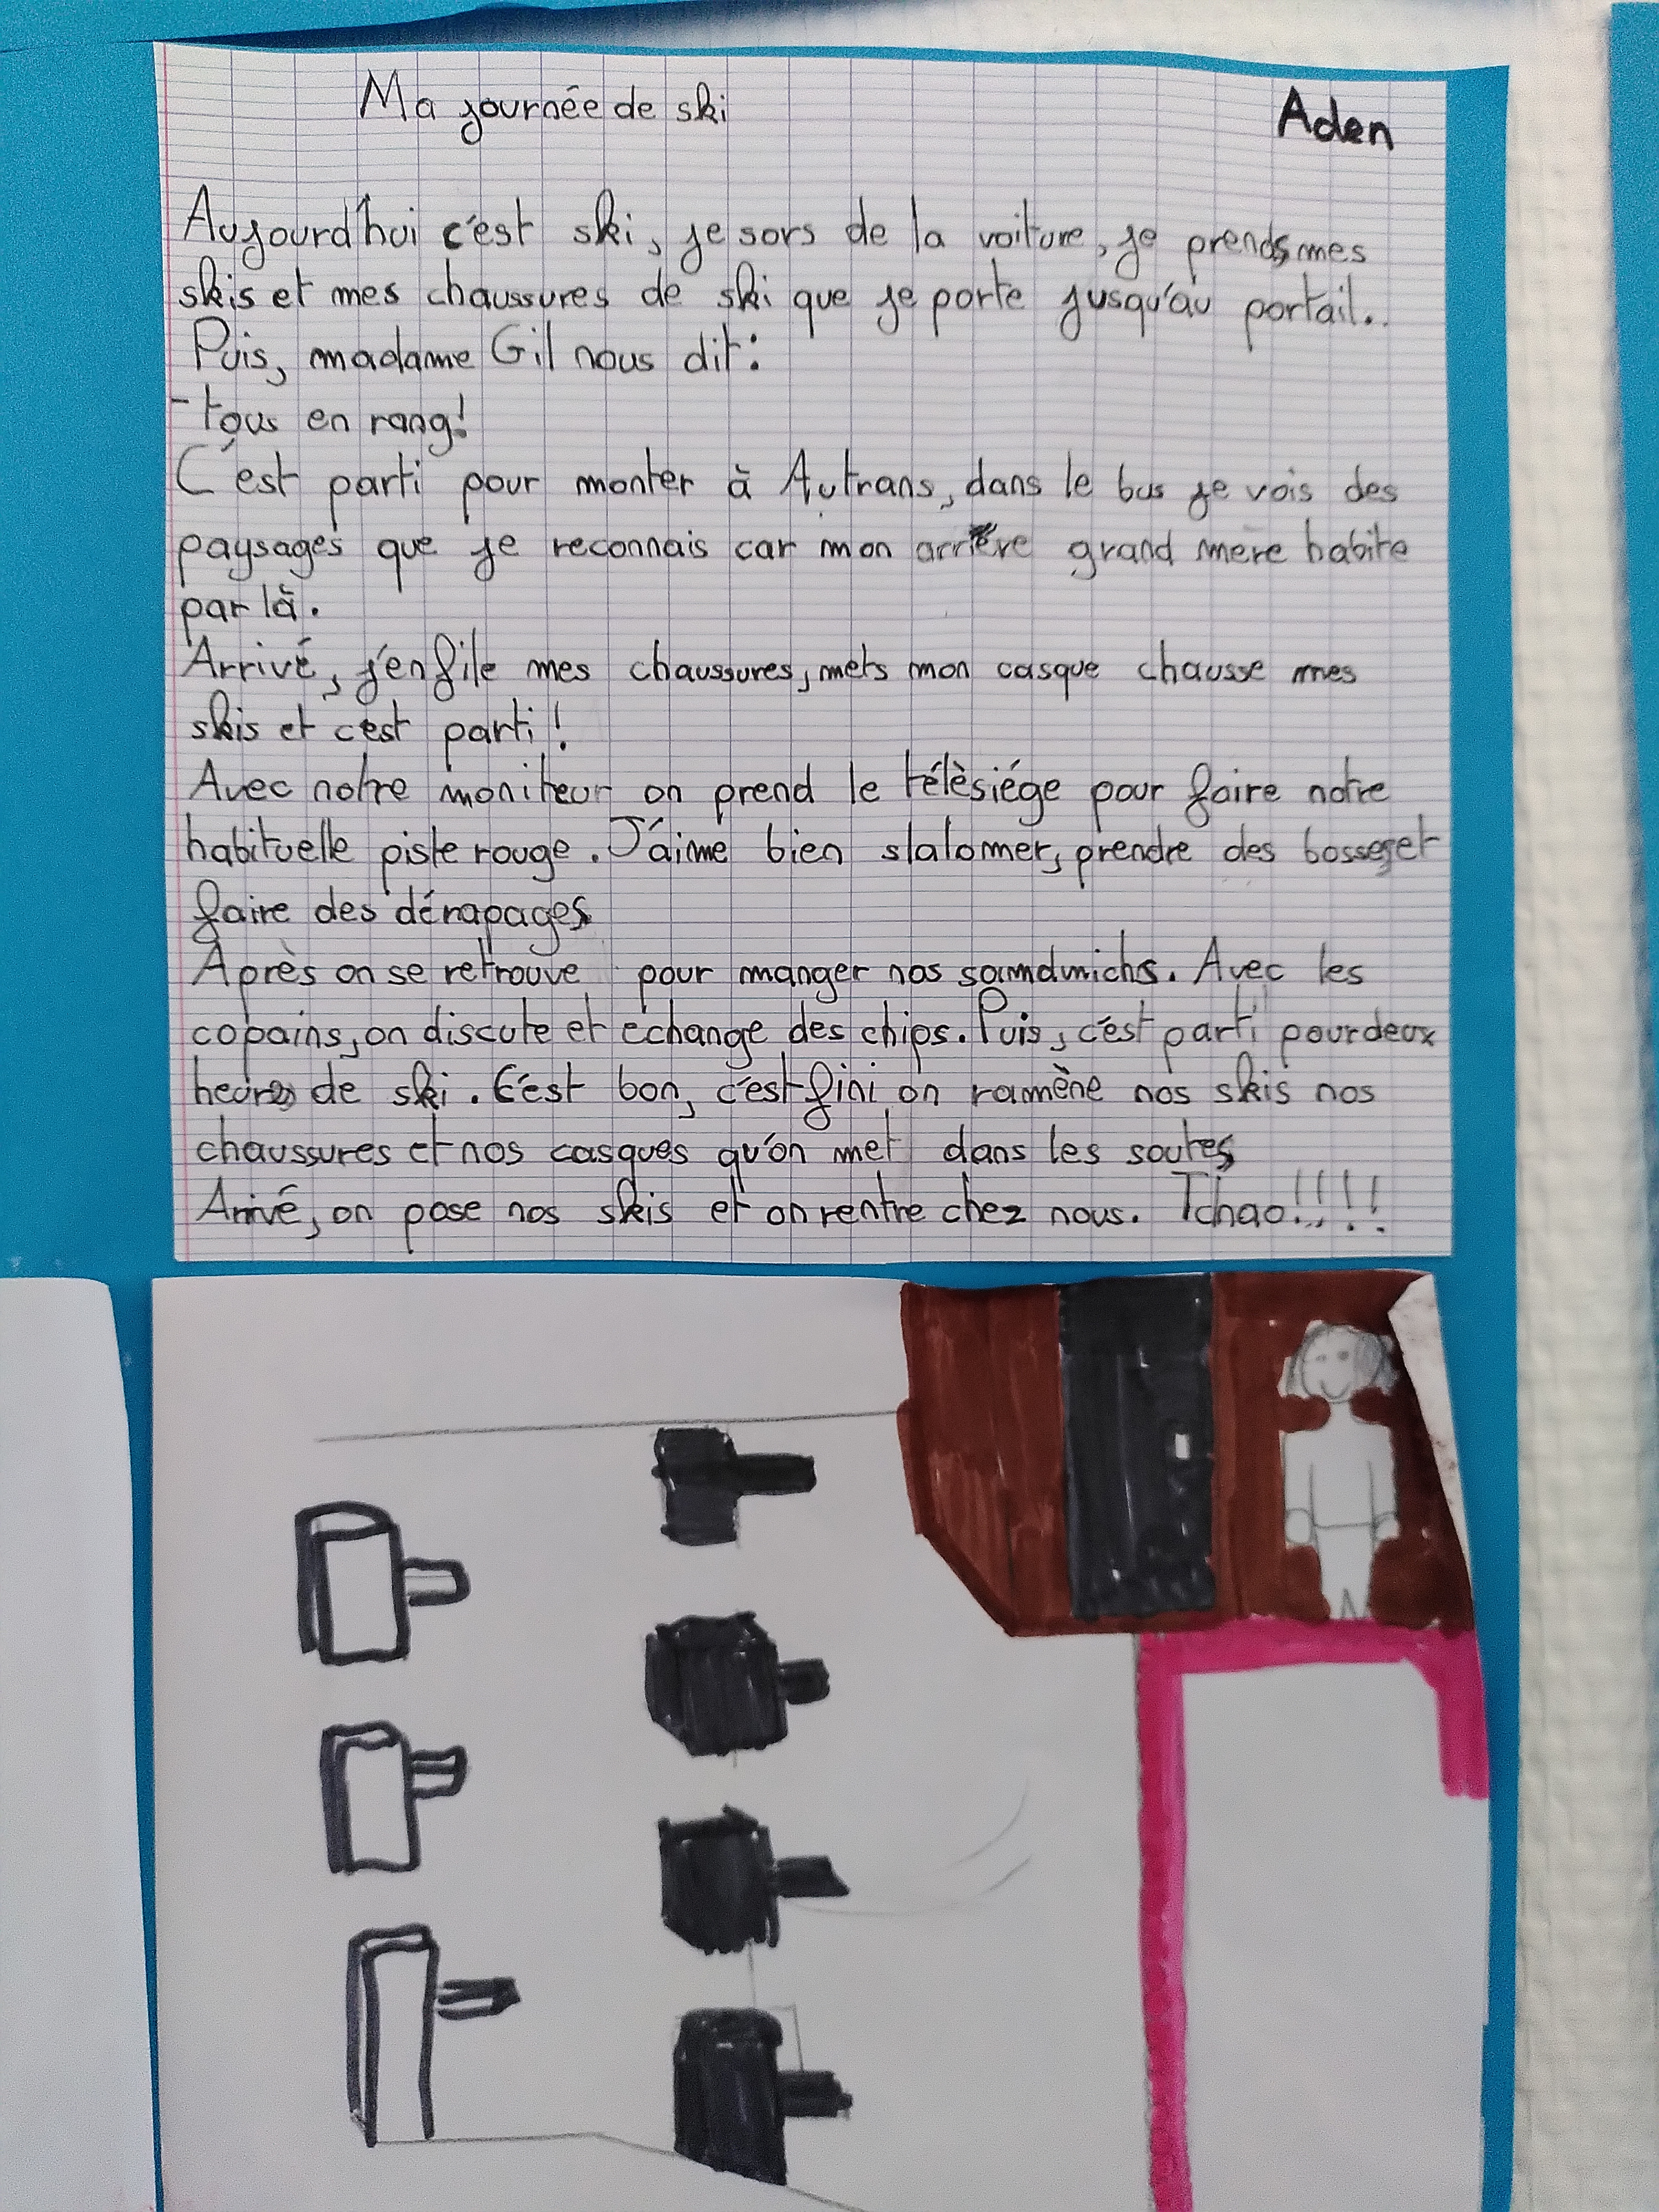 Ma journée de ski
Aden
Aujourd'hui c'est ski, je sors de la voiture, je prends mes
skis et mes chaussures de ski que je porte jusqu'au portail..
Puis, madame Gil nous dit:
- tous en rang!
C'est parti pour monter à Autrans, dans le bus je vois des
paysages que je reconnais car mon arrière grand mere habite
par là.
Arrivé, j'enfile mes chaussures, mets mon casque chausse mes
skis et c'est parti!
Avec notre moniteur on prend le télèsiége pour faire notre
habituelle piste rouge. J'aime bien slalomer, prendre des bosses et
faire des dérapages
Après on se retrouve pour manger nos samdwichs. Avec les
copains, on discute et echange des chips. Puis, c'est parti pour deux
heures de ski. C'est bon, c'est fini on ramène nos skis nos
chaussures et nos casques qu'on met dans les soutes
Arrivé, on pose nos skis et on rentre chez nous. Tchao!!!!!